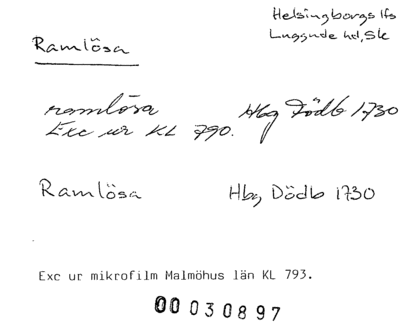 Helsingborgs lfs
Ramlösa
Luggude hd, Sk
ramlösa Hbg Dödb 1730
Exc ur KL 790.
Ramlösa Hbg Dödb 1730
Exc ur mikrofilm Malmöhus län KL 793.
00030897